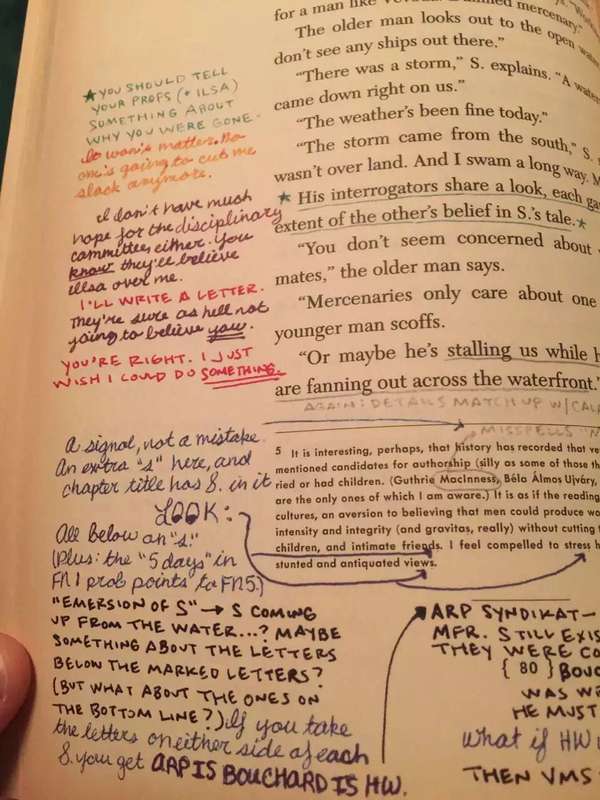 for a man like
mercenary."
The older man looks out to the open water
don't see any ships out there."
"There was a storm," S. explains. "A
came down right on us."
"The weather's been fine today."
"The storm came from the south," S.
wasn't over land. And I swam a long way.
★ His interrogators share a look, each
extent of the other's belief in S.'s tale. ★
"You don't seem concerned about
mates," the older man says.
"Mercenaries only care about one
younger man scoffs.
"Or maybe he's stalling us while
are fanning out across the waterfront."
★ YOU SHOULD TELL
YOUR PROFS (+ ILSA)
SOMETHING ABOUT
WHY YOU WERE GONE.
It won't matter. No
one's going to cut me
slack anymore.
I don't have much
hope for the disciplinary
committee, either. You
know they'll believe
Ilsa over me.
I'LL WRITE A LETTER.
They're sure as hell not
going to believe you.
YOU'RE RIGHT. I JUST
WISH I COULD DO SOMETHING.
AGAIN: DETAILS MATCH UP W/
MISSPELLS
A signal, not a mistake.
An extra "s" here, and
chapter title has S. in it
LOOK:
All below an "s."
(Plus: the "5 days" in
FN 1 prob points to FN5.)
5 It is interesting, perhaps, that history has recorded that
mentioned candidates for authorship (silly as some of those
ried or had children. (Guthrie MacInness, Béla Álmos Ujváry,
are the only ones of which I am aware.) It is as if the reading
cultures, an aversion to believing that men could produce
intensity and integrity (and gravitas, really) without cutting
children, and intimate friends. I feel compelled to stress
stunted and antiquated views.
"EMERSION OF S" → S COMING
UP FROM THE WATER...? MAYBE
SOMETHING ABOUT THE LETTERS
BELOW THE MARKED LETTERS?
(BUT WHAT ABOUT THE ONES ON
THE BOTTOM LINE?) If you take
the letters on either side of each
S. you get ARP IS BOUCHARD IS HW.
ARP SYNDIKAT—
MFR. STILL
THEY WERE
{ 80 }
WAS
HE MUST
What if HW
THEN VMS